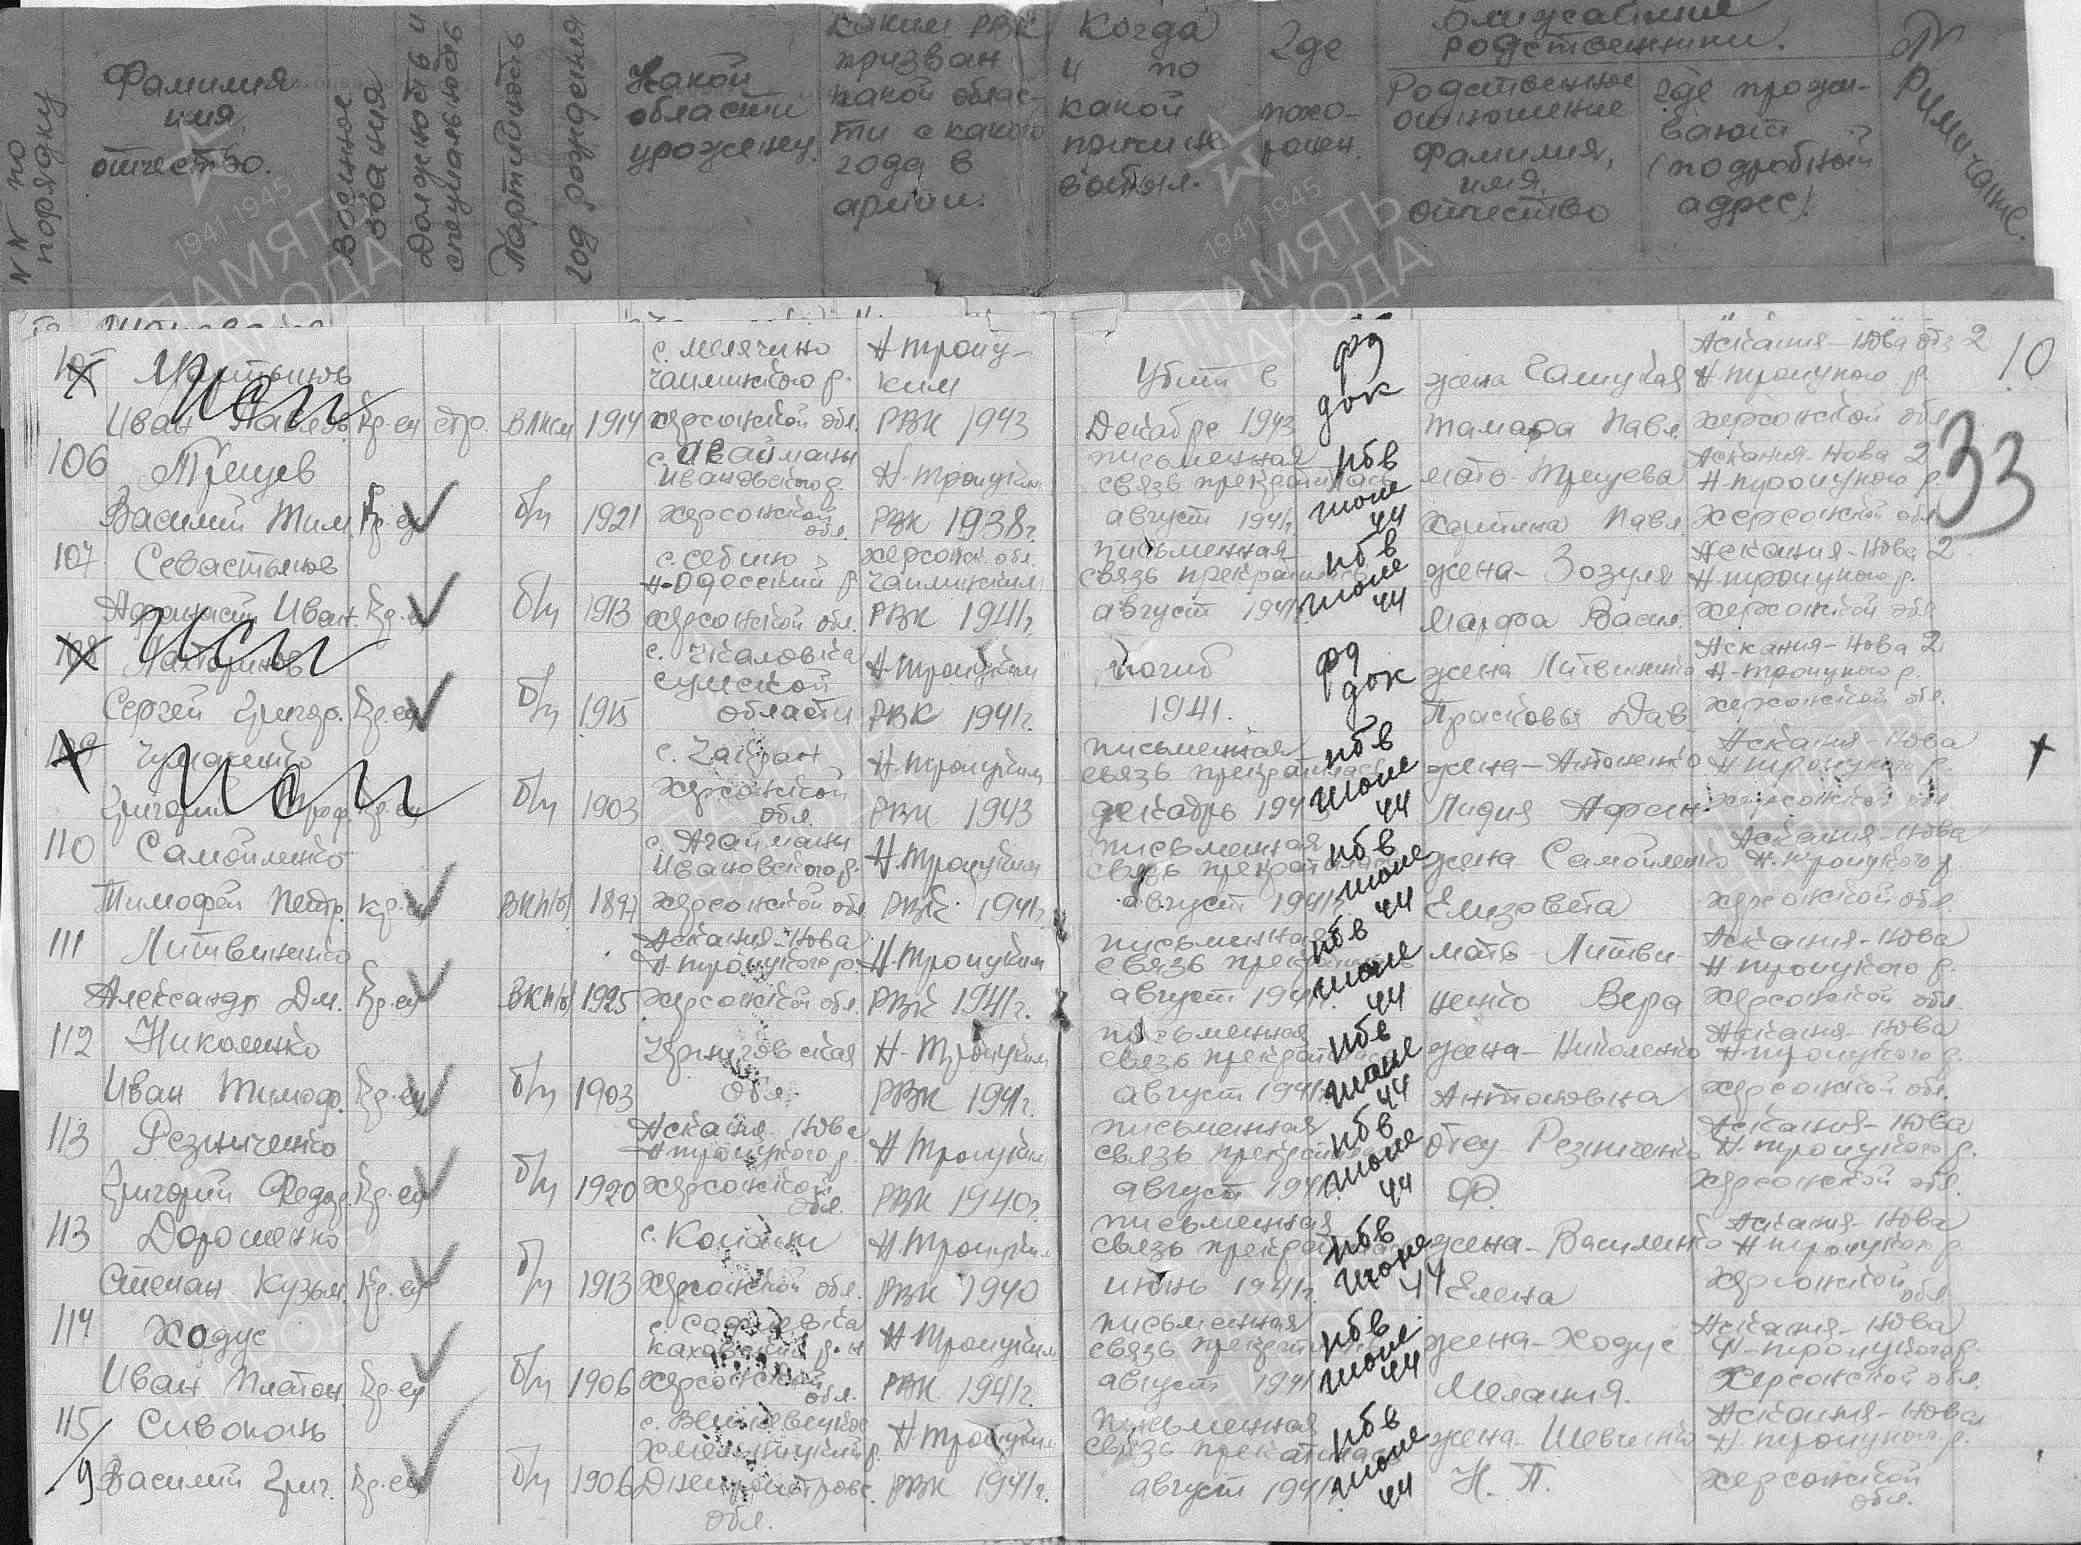 N N по порядку
Фамилия
имя,
отчество.
Военное звание
Должность и специальность
Партийность
год рождения
Какой
области
уроженец.
каким РВК
призван
какой облас-
ти с какого
года в
армии.
Когда
и по
какой
причине
выбыл.
Где
похо-
ронен.
Ближайшие
родственники.
Родственное
отношение
Фамилия,
имя,
отчество
где прожи-
вают
(подробный
адрес).
Примечание.
10
33
105
Иван Павлов. Кр-ец стр. ВЛКСМ 1914
Чаплинского р.
Херсонской обл.
Н-Троиц-
ким
РВК 1943
Убит в
Декабре 1943
фд
док
жена Галицкая
Тамара Павл.
Аскания-Нова отд 2
Н-Троицкого р.
Херсонской обл.
106 Трещев
Василий Тим. Кр-ец б/п 1921
с. Агайманы
Ивановского р.
Херсонской обл.
Н-Троицким
РВК 1938г.
письменная
связь прекратилась
август 1941г.
пбв
июле
44
мать-Трещева
Павл.
Аскания-Нова 2
Н-Троицкого р.
Херсонской обл.
107 Севастьянов
Афанасий Иван. Кр-ец б/п 1913
Н-Одесский р.
Херсонской обл.
Херсонск. обл.
Чаплинским
РВК 1941г.
письменная
связь прекратилась
август 1941г.
пбв
июле
44
жена-Зозуля
Марфа Васил.
Аскания-Нова 2
Н-Троицкого р.
Херсонской обл.
108
Исп
Сергей Григор. Кр-ец б/п 1915
с. Чкаловка
Сумской
области
Н-Троицким
РВК 1941г.
погиб
1941.
фд
док
жена Литвиненко
Прасковья Дав
Аскания-Нова 2
Н-Троицкого р.
Херсонской обл.
109 Чумаченко
Исп
Григорий Кр-ец б/п 1903
Херсонской
обл.
Н-Троицким
РВК 1943
письменная
связь прекратилась
декабрь 194
пбв
июле
44
жена-Антоненко
Лидия Афан.
Аскания-Нова
Н-Троицкого р.
Херсонской обл.
110 Самойленко
Тимофей Петр. Кр-ец ВКП/б/ 1897
с. Агайманы
Ивановского р.
Херсонской обл.
Н-Троицким
РВК 1941г.
письменная
связь прекратилась
август 1941г.
пбв
июле
44
жена Самойленко
Елизовета
Аскания-Нова
Н-Троицкого р.
Херсонской обл.
111 Литвиненко
Александр Дм. Кр-ец ВКП/б/ 1925
Аскания-Нова
Н-Троицкого р.
Херсонской обл.
Н-Троицким
РВК 1941г.
письменная
связь прекратилась
август 1941г.
пбв
июле
44
мать-Литви-
ненко Вера
Аскания-Нова
Н-Троицкого р.
Херсонской обл.
112 Николенко
Иван Тимоф. Кр-ец б/п 1903
Черниговская
обл.
Н-Троицким
РВК 1941г.
письменная
связь прекратилась
август 1941г.
пбв
июле
44
жена-Николенко
Антоновна
Аскания-Нова
Н-Троицкого р.
Херсонской обл.
113 Резниченко
Григорий Федор. Кр-ец б/п 1920
Аскания-Нова
Н-Троицкого р.
Херсонской
обл.
Н-Троицким
РВК 1940г.
письменная
связь прекратилась
август 1941г.
пбв
июле
44
отец Резниченко
Ф.
Аскания-Нова
Н-Троицкого р.
Херсонской обл.
113 Дорошенко
Степан Кузьм. Кр-ец б/п 1913
Херсонской обл.
Н-Троицким
РВК 1940
письменная
связь прекратилась
июнь 1941г.
пбв
июле
44
жена-Василенко
Елена
Аскания-Нова
Н-Троицкого р.
Херсонской
обл.
114 Ходус
Иван Платон. Кр-ец б/п 1906
с. Софиевка
Каховский р-н
Херсонской
обл.
Н-Троицким
РВК 1941г.
письменная
связь прекратилась
август 1941г.
пбв
июле
44
жена-Ходус
Мелания.
Аскания-Нова
Н-Троицкого р.
Херсонской обл.
115 Сивоконь
9 Василий Григ. Кр-ец б/п 1906
Днепропетровс.
обл.
Н-Троицким
РВК 1941г.
письменная
связь прекратилась
август 1941г.
пбв
июле
44
жена-Шевченко
Н. П.
Аскания-Нова
Н-Троицкого р.
Херсонской
обл.
1941 1945
ПАМЯТЬ
НАРОДА